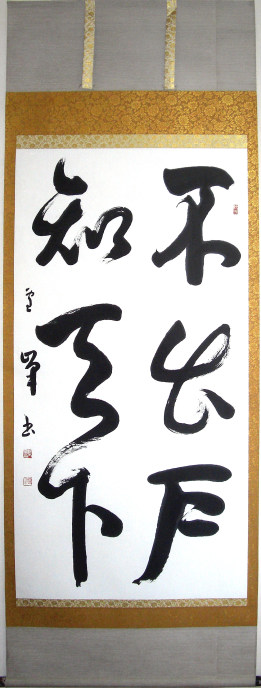 不出戸
知天下